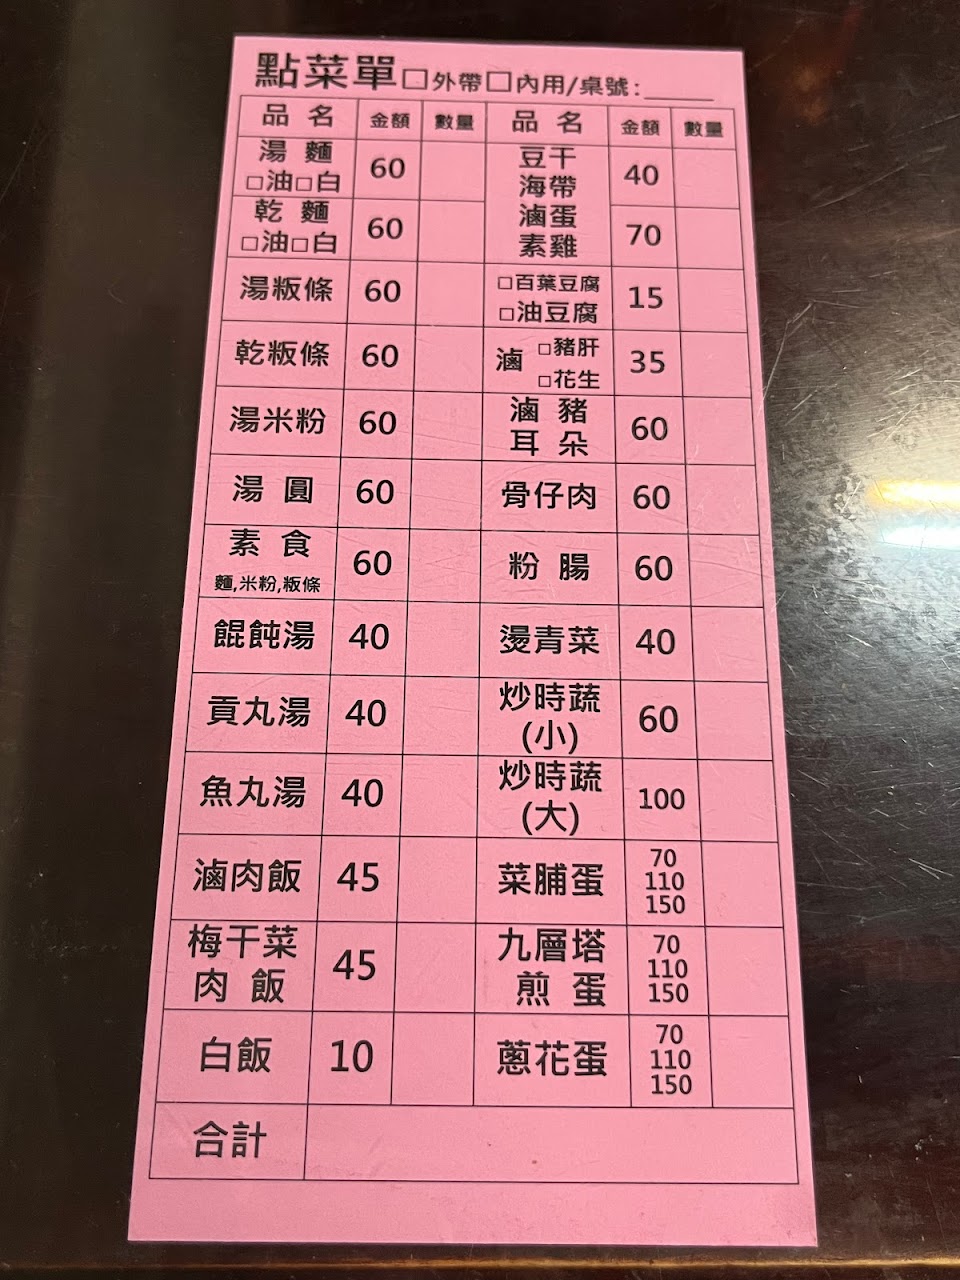 點菜單□外帶□內用/桌號:______
品 名 金額 數量 品 名 金額 數量
湯 麵
□油□白
60
豆干
海帶
滷蛋
素雞
40
70
乾 麵
□油□白
60
湯粄條 60
□百葉豆腐
□油豆腐
15
乾粄條 60
滷 □豬肝
□花生
35
湯米粉 60
滷 豬
耳 朵
60
湯 圓 60 骨仔肉 60
素 食
麵,米粉,粄條
60
粉 腸 60
餛飩湯 40 燙青菜 40
貢丸湯 40
炒時蔬
(小)
60
魚丸湯 40
炒時蔬
(大)
100
滷肉飯 45 菜脯蛋
70
110
150
梅干菜
肉 飯
45
九層塔
煎 蛋
70
110
150
白飯 10 蔥花蛋
70
110
150
合計